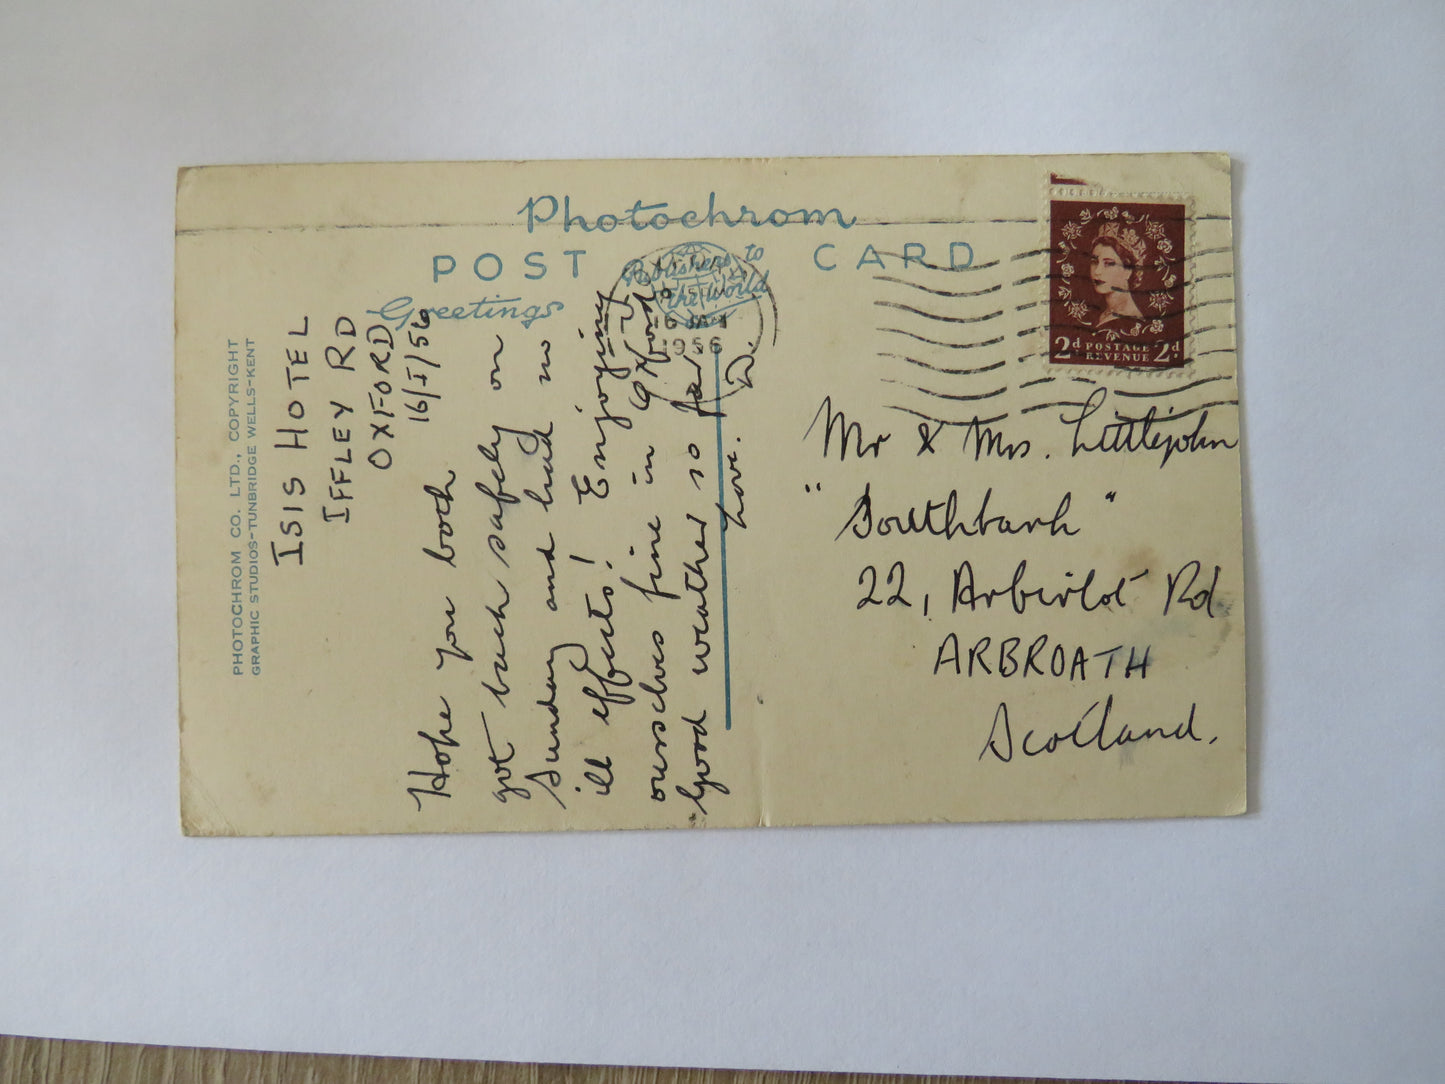 Photochrom
POST CARD
Greetings
Publishers to
the World
PHOTOCHROM CO. LTD., COPYRIGHT
GRAPHIC STUDIOS-TUNBRIDGE WELLS-KENT
ISIS HOTEL
IFFLEY RD
OXFORD
16/I/56
Hope you both
got back safely on
Sunday and had no
ill effects! Enjoying
ourselves fine in Oxford
Good weather so far.
Love.
D.
16 JAN
1956
2d POSTAGE 2d
REVENUE
Mr & Mrs. Littlejohn
"Southbank"
22, Arbirlot Rd
ARBROATH
Scotland.